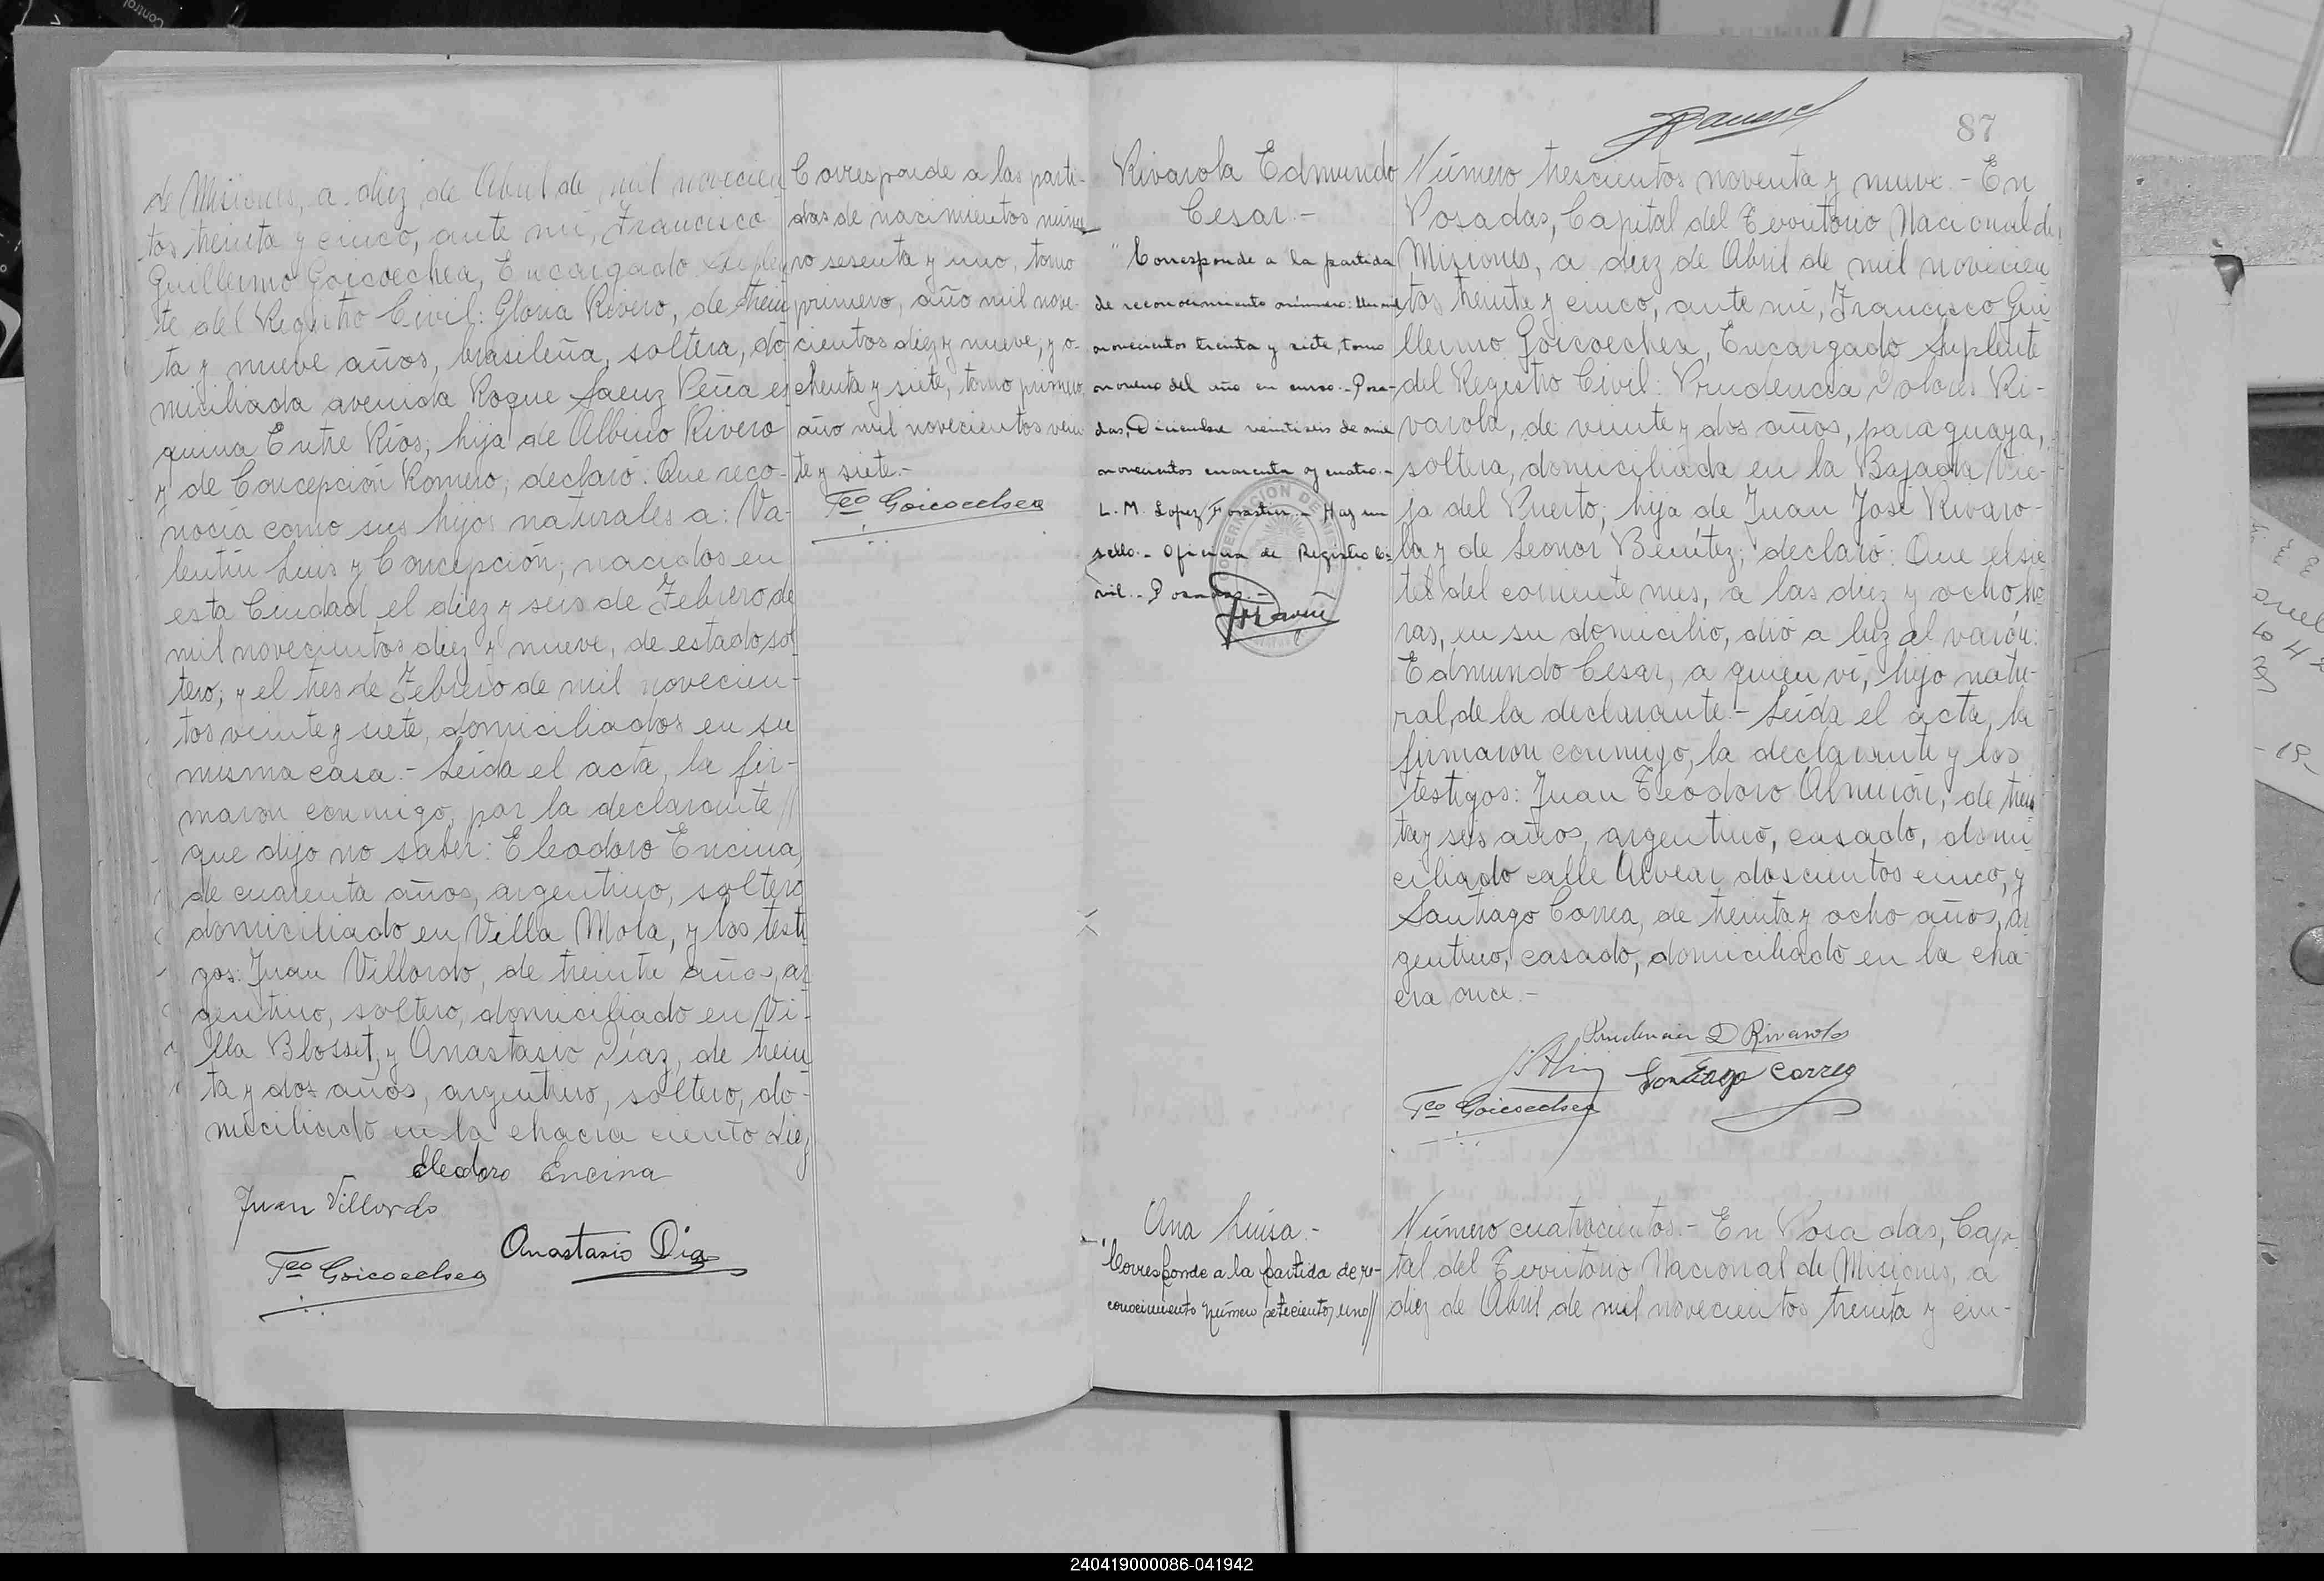 de Misiones, a diez de Abril de mil novecien
tos treinta y cinco, ante mi, Francisco
Guillermo Goicoechea, Encargado Suplen
te del Registro Civil: Gloria Rivero, de trein
ta y nueve años, brasileña, soltera, do
miciliada avenida Roque Saenz Peña es
quina Entre Ríos, hija de Albino Rivero
y de Concepción Romero, declaró: Que reco-
nocía como sus hijos naturales a: Va-
lentín Luis y Concepción, nacidos en
esta Ciudad el diez y seis de Febrero de
mil novecientos diez y nueve, de estado sol
tero, y el tres de Febrero de mil novecien-
tos veinte y siete, domiciliados en su
misma casa.- Leída el acta, la fir-
maron conmigo, por la declarante //
que dijo no saber: Eleodoro Encina,
de cuarenta años, argentino, soltero
domiciliado en Villa Mola, y los testi
gos: Juan Villordo, de treinta años, ar
gentino, soltero, domiciliado en Vi-
lla Blosset, y Anastasio Díaz, de trein
ta y dos años, argentino, soltero, do-
miciliado en la chacra ciento diez
Eleodoro Encina
Juan Villordo
Anastasio Dia
Fco Goicoechea
Corresponde a las parti-
das de nacimientos núme
ro sesenta y uno, tomo
primero, año mil nove-
cientos diez y nueve, y o-
chenta y siete, tomo primero
año mil novecientos vein
te y siete.-
Fco Goicoechea
87
Rivarola Edmundo
Cesar.-
"Corresponde a la partida
de reconocimiento número: un mil
novecientos treinta y siete, tomo
noveno del año en curso.- Posa-
das, Diciembre veintiseis de mil
novecientos cuarenta y cuatro.-
L. M. Lopez Forastier.- Hay un
sello.- Oficina de Registro Ci-
vil.- Posadas.-
Número trescientos noventa y nueve.- En
Posadas, Capital del Territorio Nacional de
Misiones, a diez de Abril de mil novecien
tos treinta y cinco, ante mi, Francisco Gui
llermo Goicoechea, Encargado Suplente
del Registro Civil: Prudencia Dolores Ri-
varola, de veinte y dos años, paraguaya,
soltera, domiciliada en la Bajada Vie-
ja del Puerto, hija de Juan José Rivaro-
la y de Leonor Benítez; declaró: Que el sie
te del corriente mes, a las diez y ocho ho
ras, en su domicilio, dió a luz al varón:
Edmundo Cesar, a quien ví, hijo natu-
ral, de la declarante.- Leída el acta, la
firmaron conmigo, la declarante y los
testigos: Juan Teodoro Almirón, de trein
ta y seis años, argentino, casado, domi
ciliado calle Alvear doscientos cinco, y
Santiago Correa, de treinta y ocho años, ar
gentino, casado, domiciliado en la cha-
cra once.-
Prudencia D Rivarola
Santiago Correa
Fco Goicoechea
Ana Luisa.-
Corresponde a la partida de re-
conocimiento número setecientos uno //
Número cuatrocientos.- En Posadas, Capi-
tal del Territorio Nacional de Misiones, a
diez de Abril de mil novecientos treinta y cin-
240419000086-041942